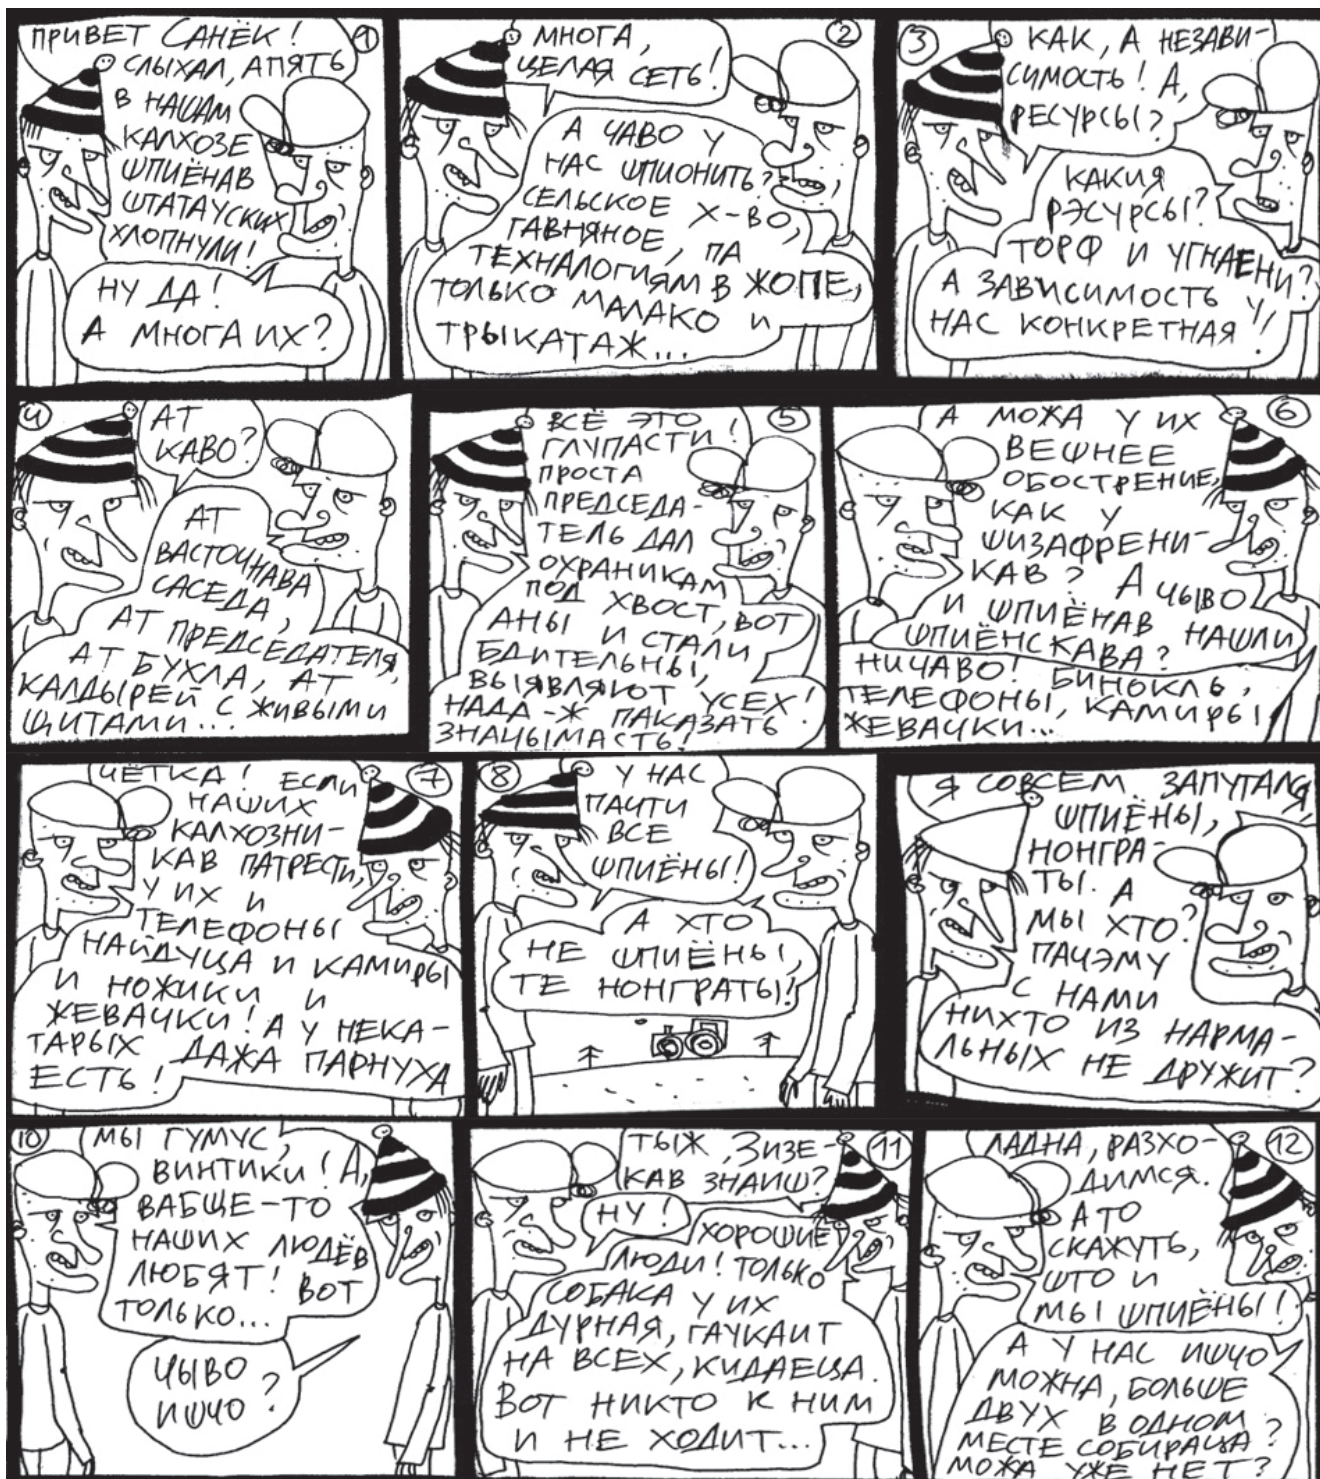 ПРИВЕТ САНЁК!
СЛЫХАЛ, АПЯТЬ
В НАШАМ
КАЛХОЗЕ
ШПИЁНАВ
ШТАТАУСКИХ
ХЛОПНУЛИ!
1
НУ ДА!
А МНОГА ИХ?
МНОГА,
ЦЕЛАЯ СЕТЬ!
2
А ЧАВО У
НАС ШПИОНИТЬ?
СЕЛЬСКОЕ Х-ВО,
ГАВНЯНОЕ, ПА
ТЕХНАЛОГИЯМ В ЖОПЕ,
ТОЛЬКО МАЛАКО И
ТРЫКАТАЖ...
3
КАК, А НЕЗАВИ-
СИМОСТЬ! А,
РЕСУРСЫ?
КАКИЯ
РЭСУРСЫ?
ТОРФ И УГНАЕНИ?
А ЗАВИСИМОСТЬ У
НАС КОНКРЕТНАЯ!
4
АТ
КАВО?
АТ
ВАСТОЧНАВА
САСЕДА,
АТ ПРЕДСЕДАТЕЛЯ,
АТ БУХЛА, АТ
КАЛДЫРЕЙ С ЖИВЫМИ
ЩИТАМИ...
5
ВСЁ ЭТО
ГЛУПАСТИ!
ПРОСТА
ПРЕДСЕДА-
ТЕЛЬ ДАЛ
ОХРАНИКАМ
ПОД ХВОСТ, ВОТ
АНЫ И СТАЛИ
БДИТЕЛЬНЫ,
ВЫЯВЛЯЮТ УСЕХ!
НАДА-Ж ПАКАЗАТЬ
ЗНАЧЫМАСТЬ!
6
А МОЖА У ИХ
ВЕШНЕЕ
ОБОСТРЕНИЕ,
КАК У
ШИЗАФРЕНИ-
КАВ? А ЧЫВО
И ШПИЁНАВ НАШЛИ
ШПИЁНСКАВА?
НИЧАВО! БИНОКЛЬ,
ТЕЛЕФОНЫ, КАМИРЫ,
ЖЕВАЧКИ...
7
ЧЁТКА! ЕСЛИ
НАШИХ
КАЛХОЗНИ-
КАВ ПАТРЕСТИ,
У ИХ И
ТЕЛЕФОНЫ
НАЙДУЦА И КАМИРЫ
И НОЖИКИ И
ЖЕВАЧКИ! А У НЕКА-
ТАРЫХ ДАЖА ПАРНУХА
ЕСТЬ!
8
У НАС
ПАЧТИ
ВСЕ
ШПИЁНЫ!
А ХТО
НЕ ШПИЁНЫ,
ТЕ НОНГРАТЫ!
Я СОВСЕМ ЗАПУТАЛСЯ,
ШПИЁНЫ,
НОНГРА-
ТЫ. А
МЫ ХТО?
ПАЧЭМУ
С НАМИ
НИХТО ИЗ НАРМА-
ЛЬНЫХ НЕ ДРУЖИТ?
10
МЫ ГУМУС,
ВИНТИКИ! А,
ВАБЩЕ-ТО
НАШИХ ЛЮДЁВ
ЛЮБЯТ! ВОТ
ТОЛЬКО...
ЧЫВО
ИШЧО?
11
ТЫЖ, ЗИЗЕ-
КАВ ЗНАИШ?
НУ!
ХОРОШИЕ
ЛЮДИ! ТОЛЬКО
СОБАКА У ИХ
ДУРНАЯ, ГАЧКАИТ
НА ВСЕХ, КИДАЕЦА.
ВОТ НИКТО К НИМ
И НЕ ХОДИТ...
12
ЛАДНА, РАЗХО-
ДИМСЯ.
А ТО
СКАЖУТЬ,
ШТО И
МЫ ШПИЁНЫ!
А У НАС ИШЧО
МОЖНА, БОЛЬШЕ
ДВУХ В ОДНОМ
МЕСТЕ СОБИРАЦА?
МОЖА УЖЕ НЕТ?